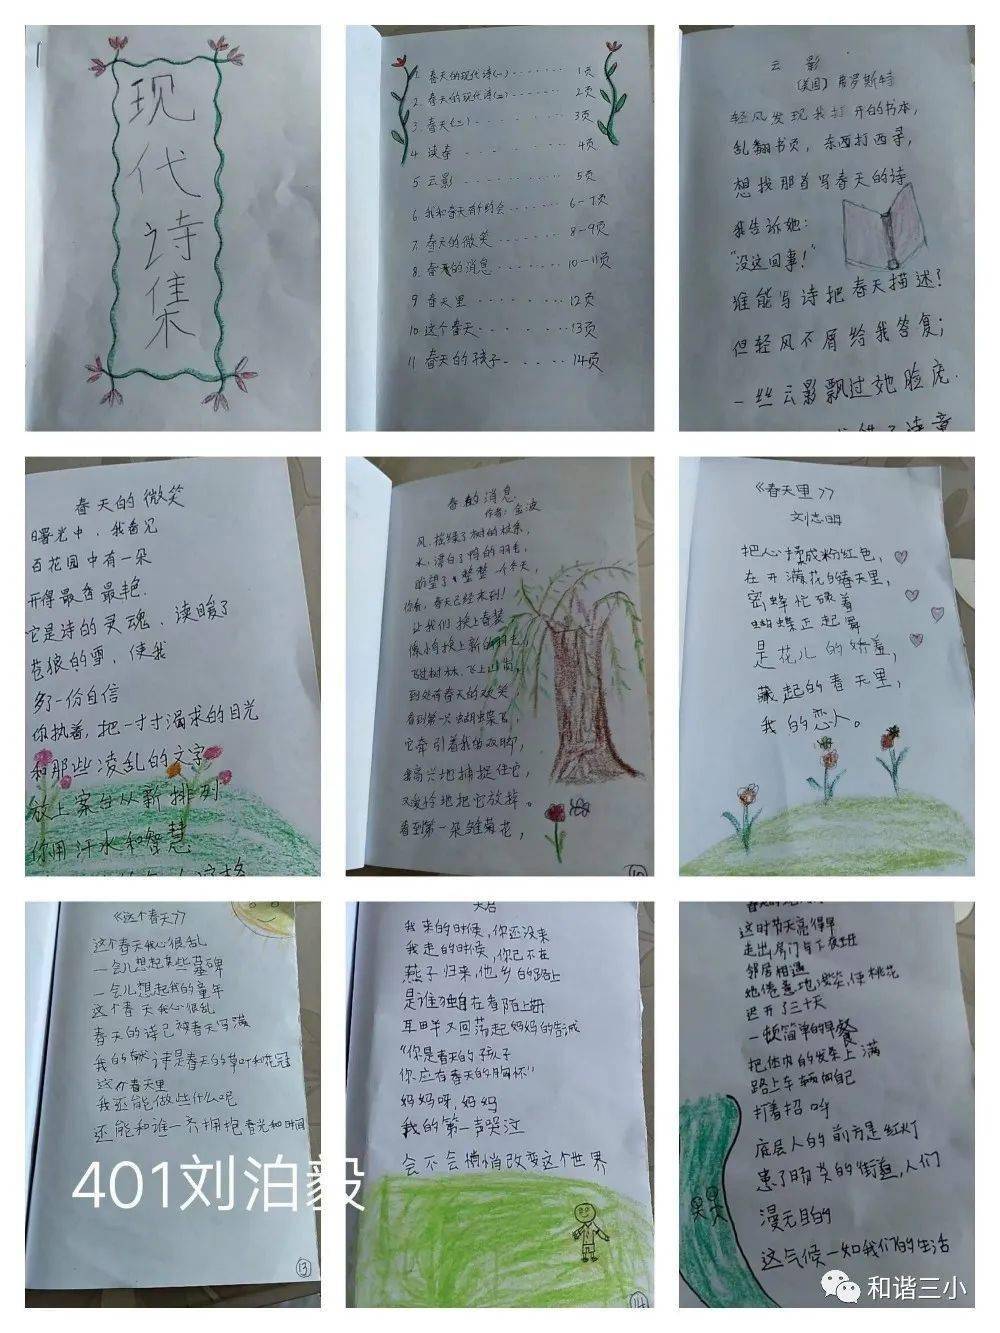 现
代
诗
集
1. 春天的现代诗(一)······· 1页
2. 春天的现代诗(二)······· 2页
3. 春天(三)········ 3页
4 读春 ·········· 4页
5 云影 ·········· 5页
6. 我和春天有个约会······· 6-7页
7. 春天的微笑······· 8-9页
8. 春天的消息········ 10-11页
9 春天里 ········ 12页
10 这个春天········ 13页
11 春天的孩子······· 14页
云 影
〔美国〕弗罗斯特
轻风发现我打开的书本,
乱翻书页,东西打西寻,
想找那首写春天的诗
我告诉她:
“没这回事!”
谁能写诗把春天描述!
但轻风不屑给我答复;
一丝云影飘过她脸庞.
春天的微笑
曙光中,我看见
百花园中有一朵
开得最香最艳.
它是诗的灵魂,读暖了
苍狼的雪,使我
多了一份自信
你执着,把一寸寸渴求的目光
和那些凌乱的文字
放上案台从新排列
你用汗水和智慧
春的消息
作者:金波
风,摇绿了树的枝条,
水,漂白了鸭的羽毛,
盼望了整整一个冬天,
你看,春天已经来到!
让我们换上春装
像小鸟换上新的羽毛,
飞过树林,飞上山岗,
到处有春天的欢笑。
看到第一只蝴蝶飞,
它牵引着我的双脚,
我高兴地捕捉住它,
又爱怜地把它放掉。
看到第一朵雏菊花,
10
《春天里》
刘志明
把心揉成粉红色,
在开满花的春天里,
蜜蜂忙碌着
蝴蝶正起舞
是花儿的娇羞,
藏起的春天里,
我的恋人。
《这个春天》
这个春天我心很乱
一会儿想起某些墓碑
一会儿想起我的童年
这个春天我心很乱
春天的诗已被春天写满
我的献诗是春天的草叶和花冠
这个春天里
我还能做些什么呢
还能和谁一齐拥抱春光和时间
13
我来的时候,你还没来
我走的时候,你已不在
燕子归来,他乡的路上
是谁独自在春陌上册
耳畔又回荡起妈妈的告诫
“你是春天的孩子
你应有春天的胸怀”
妈妈呀,妈妈
我的第一声哭泣
会不会悄悄改变这个世界
14
这时节天亮得早
走出房门与下夜班
邻居相遇
她倦意地微笑,使桃花
迟开了三十天
一顿简单的早餐
把体内的发条上满
路上车辆和自己
打着招呼
底层人的前方是红灯
患了肠炎的街道,人们
漫无目的
这气候一如我们的生活
401刘泊毅
和谐三小